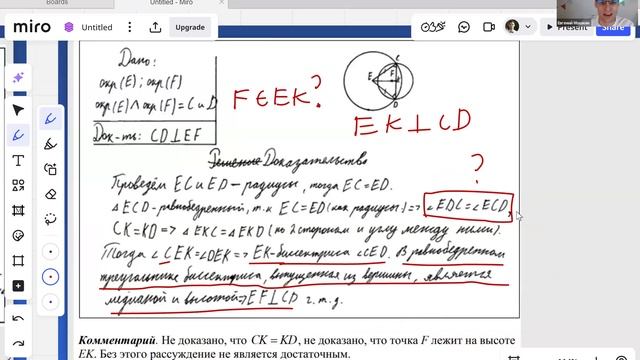 Boards
Untitled - Miro
miro
Untitled
Upgrade
Present
Share
Дано:
окр(E); окр(F)
окр(E) ∩ окр(F) = C и D
Док-ть: CD⊥EF
F ∈ EK?
C
E F
D
EK ⊥ CD
Решение Доказательство
?
Проведём EC и ED – радиусы, тогда EC=ED.
△ECD – равнобедренный, т.к EC=ED (как радиусы) => ∠EDC=∠ECD,
CK=KD => △EKC=△EKD (по 2 сторонам и углу между ними).
Тогда ∠CEK=∠DEK => EK-биссектриса ∠CED. В равнобедренном
треугольнике биссектриса, опущенная из вершины, является
медианой и высотой => EF⊥CD ч.т.д.
Комментарий. Не доказано, что CK = KD, не доказано, что точка F лежит на высоте
EK. Без этого рассуждение не является достаточным.